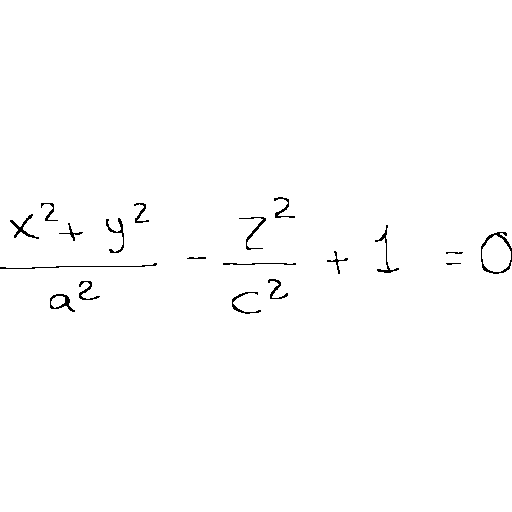 \frac{x^2 + y^2}{a^2} - \frac{z^2}{c^2} + 1 = 0